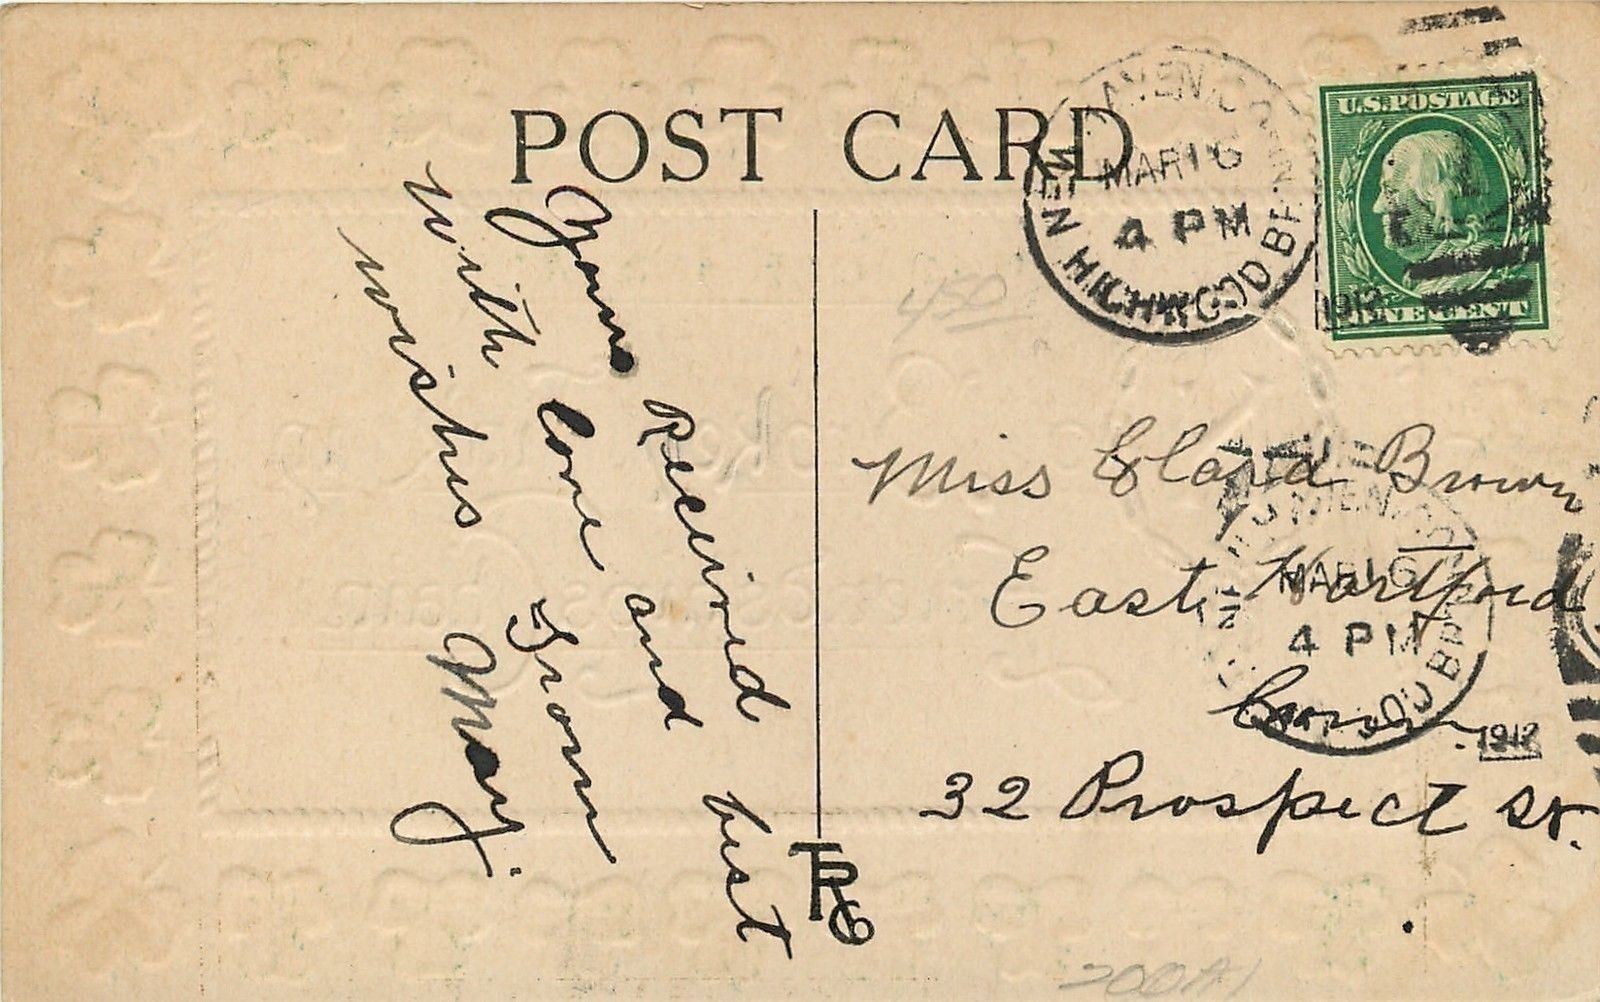 POST CARD
U.S. POSTAGE
NEW HAVEN, CONN.
MAR 16
4 PM
HIGHWOOD BR.
1912
Yours Received
with love and best
wishes From
Mary.
450
Miss Clara Brown
East Hartford
Conn.
32 Prospect St.
MAR 16
4 PM
1912
TRG
200A1